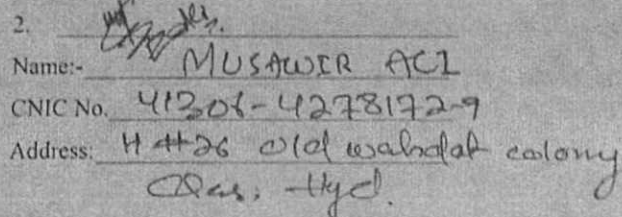 2.
Name:- MUSAWIR ALI
CNIC No. 41306-4278172-9
Address: H #26 old wahdat colony
Qas: Hyd.